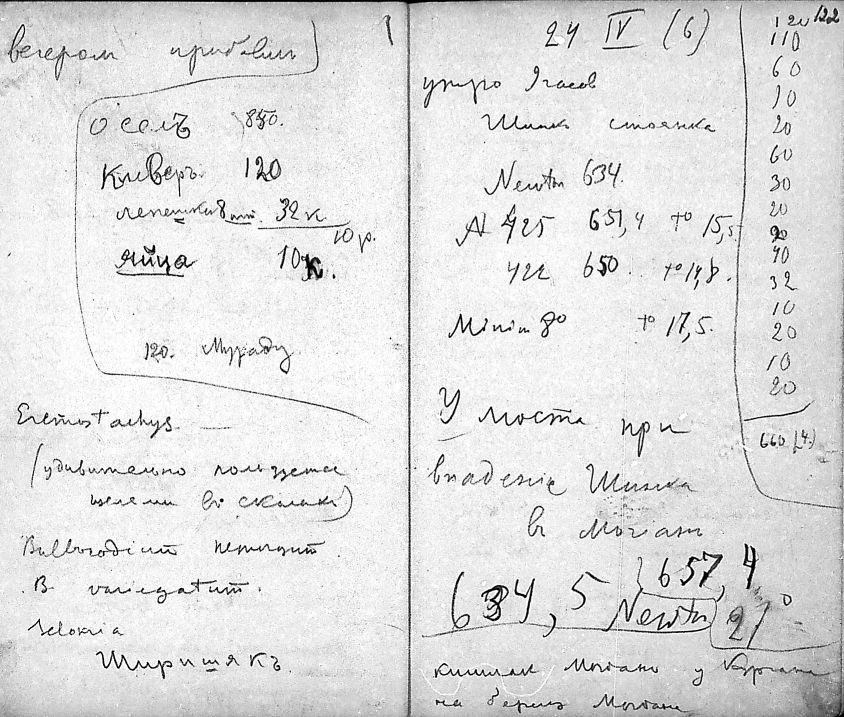 вечером прибавил
оселъ 850.
Клеверъ 120
лепешки 8 шт. 32 к
10 р.
яйца 10 к.
120. Мураду
Eremostachys —
(удивительно пользуется
щелями въ скалахъ)
B. variegatum.
Ширишякъ.
122
24 IV (6)
утро 7 часов
Шинк стоянка
Newton 634.
N 425 651,4 t° 15,5
422 650 t° 14,8.
Minim 8° t° 17,5.
У моста при
впадение Шинка
въ Могиан
634,5 657,4
Newton 21°
кишлак Могиан у
на берегу Могиана
120
110
60
10
20
60
30
20
20
40
32
10
20
10
20
660 (4.)